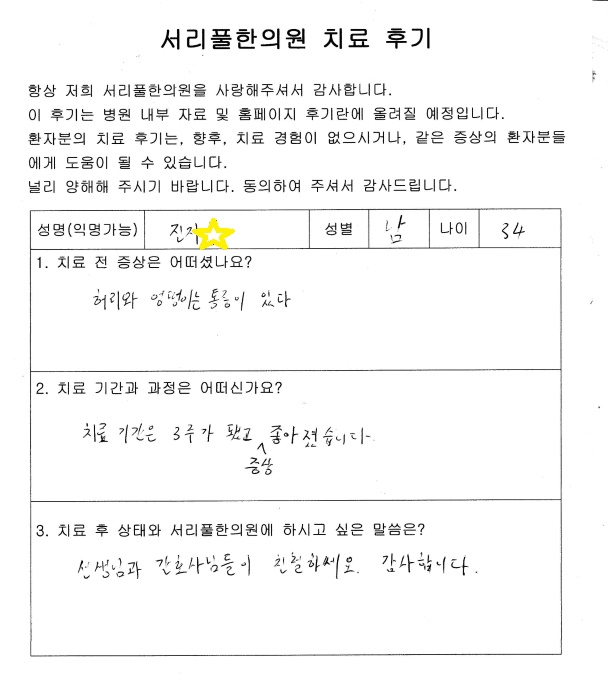 서리풀한의원 치료 후기
항상 저희 서리풀한의원을 사랑해주셔서 감사합니다.
이 후기는 병원 내부 자료 및 홈페이지 후기란에 올려질 예정입니다.
환자분의 치료 후기는, 향후, 치료 경험이 없으시거나, 같은 증상의 환자분들
에게 도움이 될 수 있습니다.
널리 양해해 주시기 바랍니다. 동의하여 주셔서 감사드립니다.
성명(익명가능) 진지 성별 남 나이 34
1. 치료 전 증상은 어떠셨나요?
허리와 엉덩이는 통증이 있다
2. 치료 기간과 과정은 어떠신가요?
치료 기간은 3주가 됐고 증상 좋아졌습니다.
3. 치료 후 상태와 서리풀한의원에 하시고 싶은 말씀은?
선생님과 간호사님들이 친절하세요. 감사합니다.